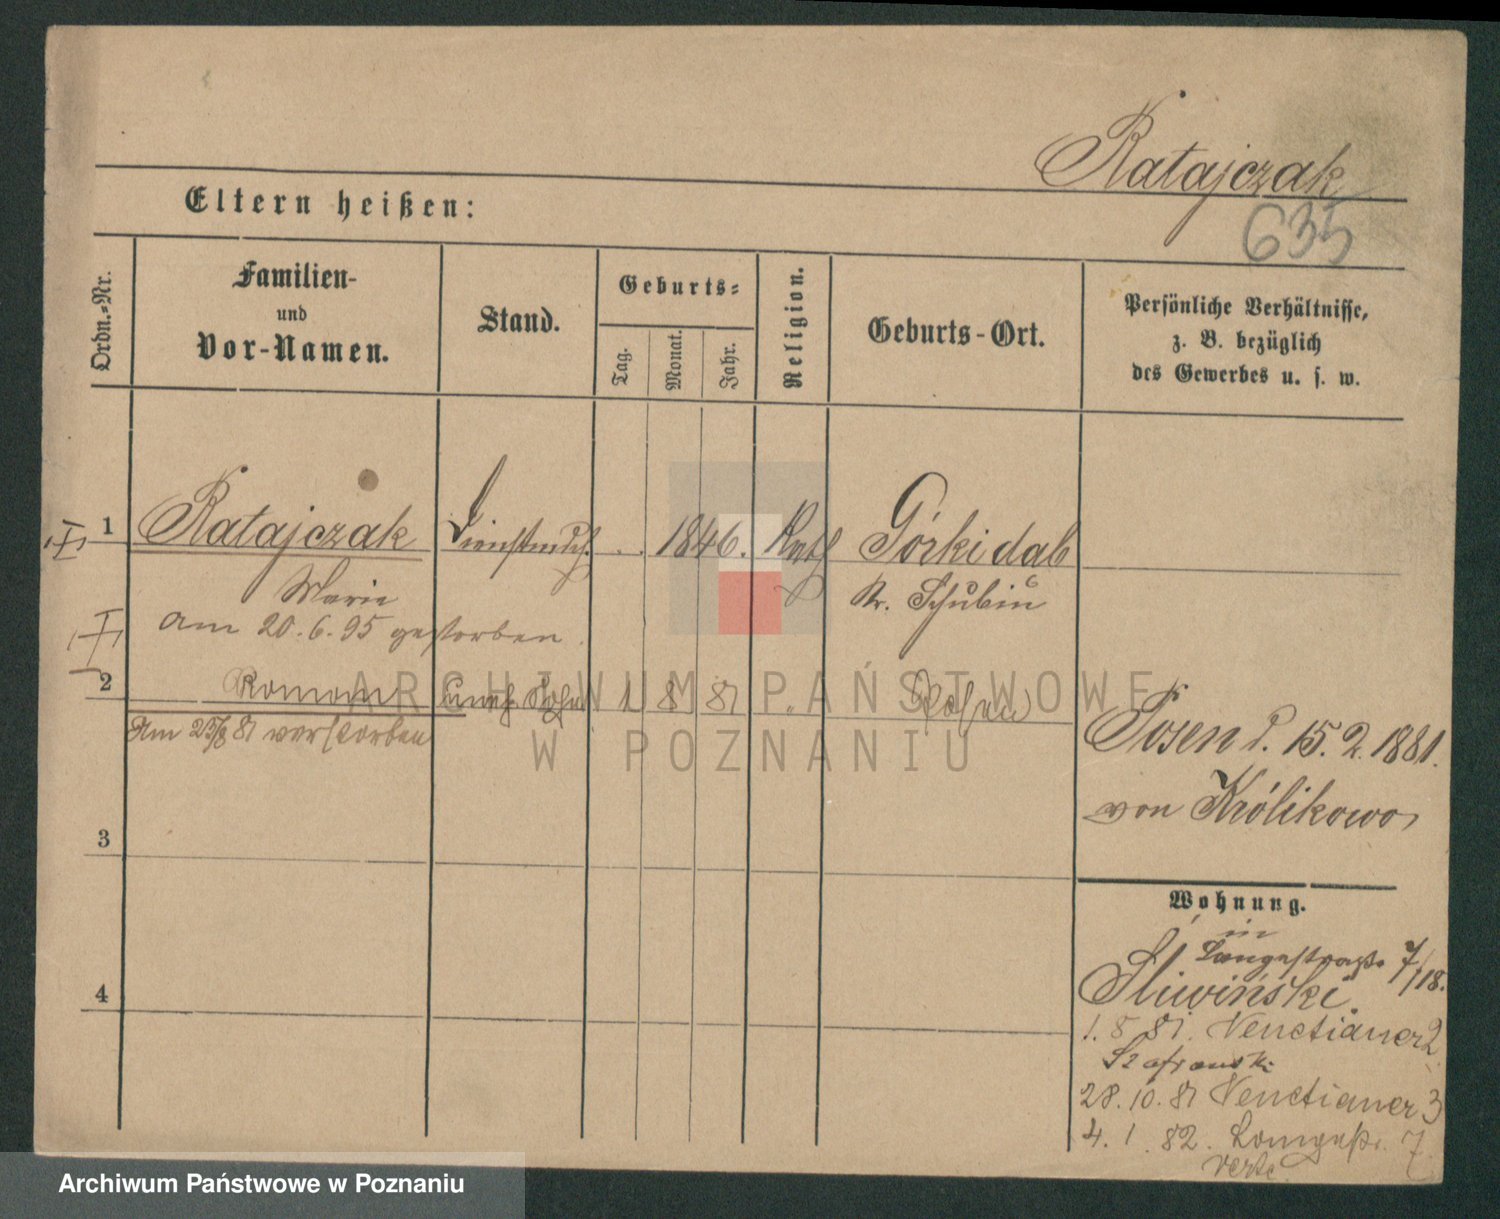 Ratajczak
635
Eltern heißen:
Ordn.-Nr.
Familien-
und
Vor-Namen.
Stand.
Geburts-
Tag.
Monat.
Jahr.
Religion.
Geburts-Ort.
Persönliche Verhältnisse,
z. B. bezüglich
des Gewerbes u. s. w.
1 Ratajczak Dienstmdch. . . 1846. Kath Górki dab
Marie Kr. Schubin
am 20.6.95 gestorben.
2 Roman uneh. Sohn 1 8 81 " Posen
Am 25/8 81 verstorben
Posen d. 15. 2. 1881.
von Królikowo
3
Wohnung.
in
Langestraße 7/18.
Śliwiński
4
1. 8 81. Venetianer 2
Szafranski
28. 10. 81 Venetianer 3
4. 1. 82. Langestr. 7
verte.
ARCHIWUM PAŃSTWOWE
W POZNANIU
Archiwum Państwowe w Poznaniu